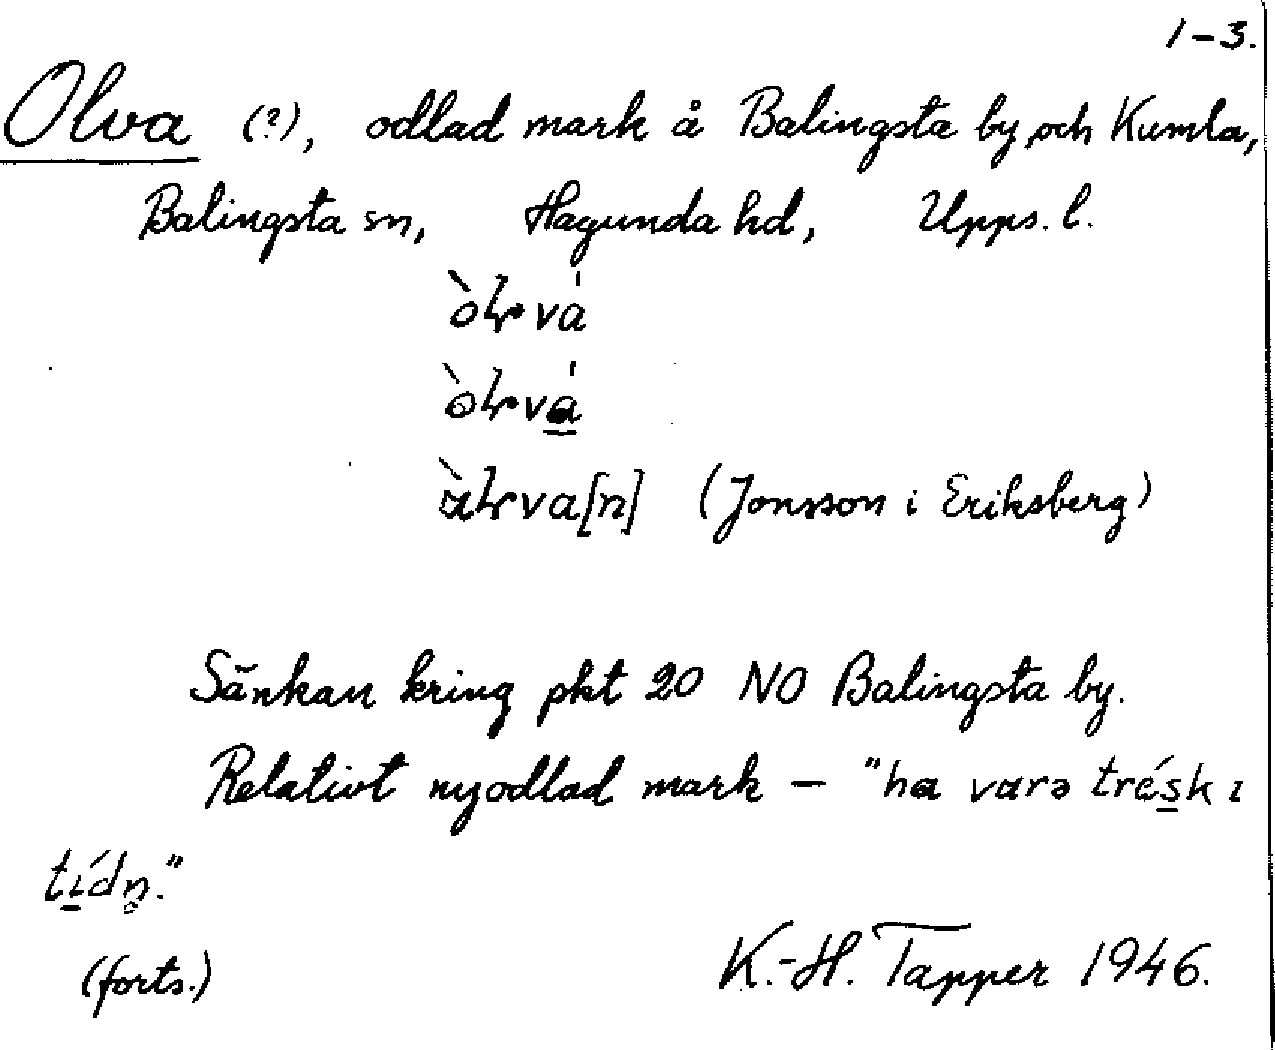 1-3.
Olva (?), odlad mark å Balingsta by och Kumla,
Balingsta sn, Hagunda hd, Upps. l.
(Jonsson i Eriksberg)
Sänkan kring pkt 20 NO Balingsta by.
Relativt nyodlad mark — "ha varə trésk ı
tídn̥."
(forts.) K.-H. Tapper 1946.